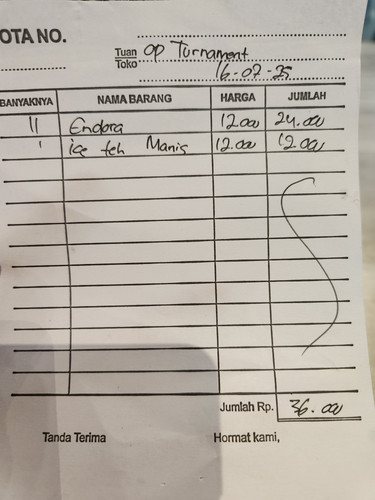 OTA NO.
Tuan Toko OP Turnament
16-07-25
BANYAKNYA NAMA BARANG HARGA JUMLAH
11 Endora 12.000 24.000
1 ice teh Manis 12.000 12.000
Jumlah Rp. 36.000
Tanda Terima Hormat kami,